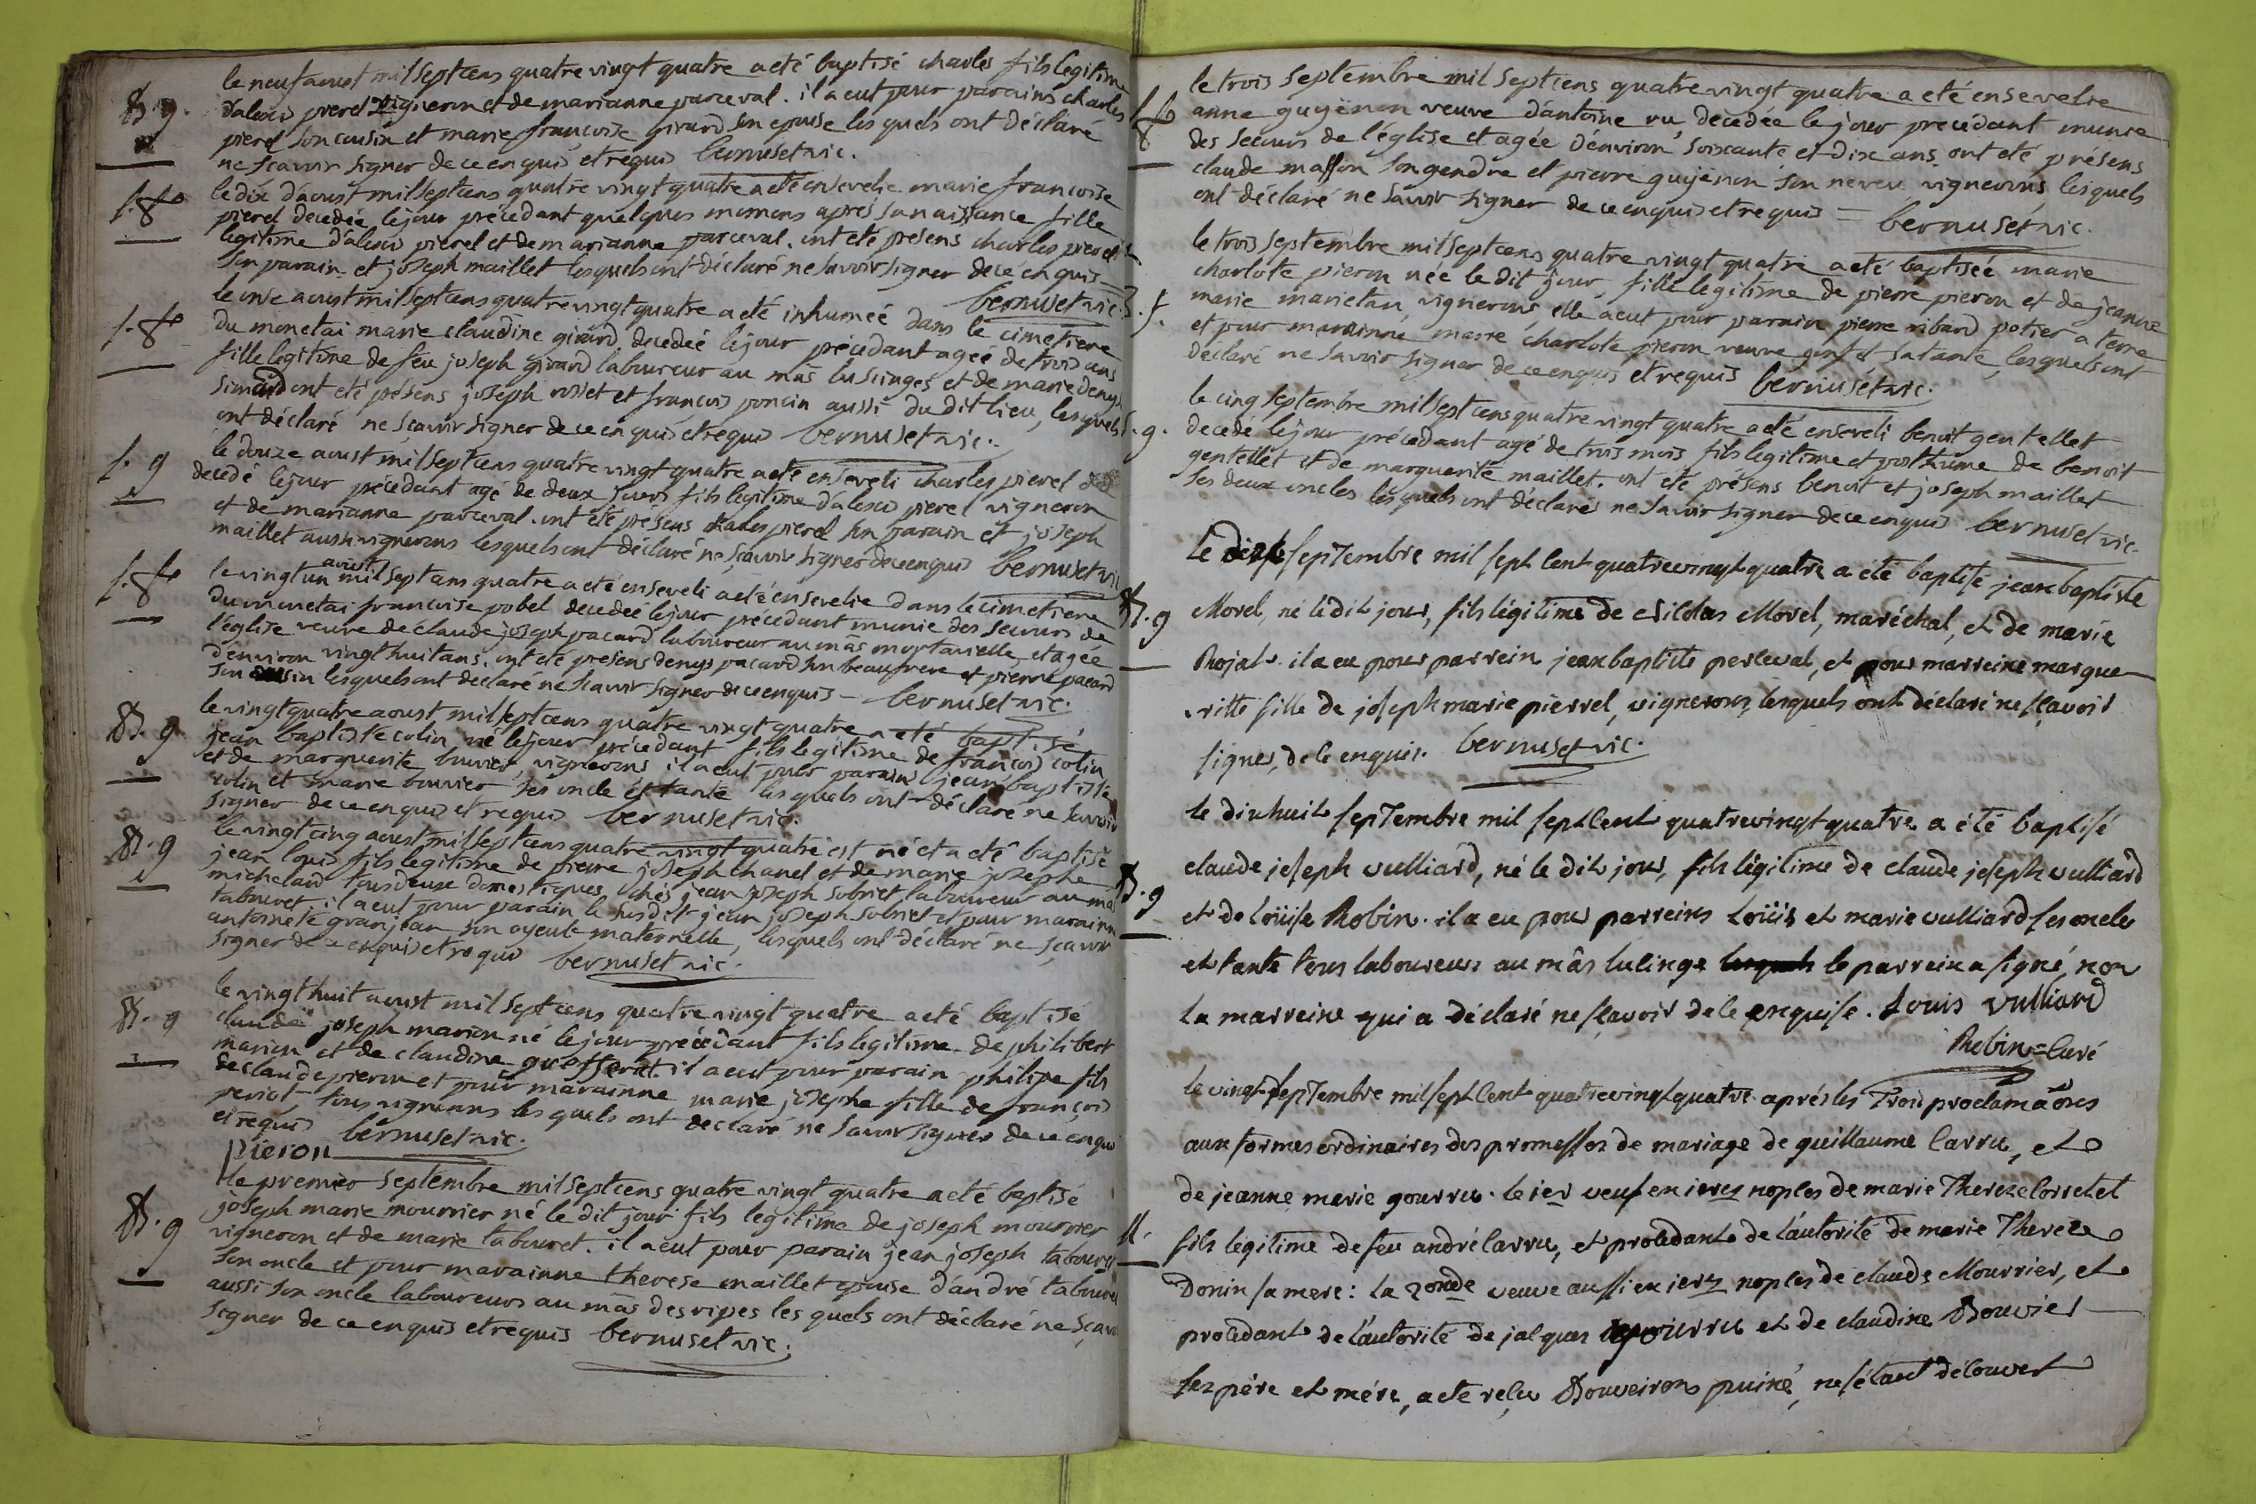 B. g.
le neuf aoust mil septcens quatre vingt quatre a eté baptisé charles fils legitime
d'alexis pierel vigneron et de marianne parceval. il a eut pour parains charles
pierel son cousin et marie françoise girard son epouse lesquels ont déclaré
ne scavoir signer de ce enquis et requis bernuset vic.
S. fe
le dix d'aoust mil septcens quatre vingt quatre a eté ensevelie marie francoise
pierel decedée le jour précédant quelques momens après sa naissance fille
legitime d'alexis pierel et de marianne parceval. ont eté présens charles pierel
son parain et joseph maillet lesquels ont déclaré ne savoir signer de ce enquis
bernuset vic.
S. fe
le onze aoust mil septcens quatre vingt quatre a eté inhumée dans le cimetiere
du monetai marie claudine girard decedée le jour précédant agée de trois ans
fille legitime de feu joseph girard laboureur au mâs lusinges et de marie denyse
simard ont eté présens joseph rosset et francois poncin aussi du dit lieu, lesquels
ont déclaré ne scavoir signer de ce enquis et requis bernuset vic.
S. g
le douze aoust mil septcens quatre vingt quatre a eté enseveli charles pierel
decedé le jour précédant agé de deux jours fils legitime d'alexis pierel vigneron
et de marianne parceval. ont eté présens charles pierel son parain et joseph
maillet aussi vignerons lesquels ont déclaré ne scavoir signer de ce enquis bernuset vic
S. fe
le vingt un aoust mil septcens quatre a eté enseveli a eté ensevelie dans le cimetiere
du monetai francoise pobel decedée le jour précédant munie des secours de
l'église veuve de claude joseph pacard laboureur au mâs mortarielle, et agée
d'environ vingt huit ans. ont eté présens denys pacard son beaufrere et pierre pacard
son cousin lesquels ont déclaré ne scavoir signer de ce enquis - bernuset vic.
B. g
le vingt quatre aoust mil septcens quatre vingt quatre a eté baptisé
jean baptiste colin né le jour précédant fils legitime de françois colin
et de marguerite bouvier vignerons il a eut pour parains jean baptiste
colin et marie bouvier ses oncle et tante lesquels ont déclaré ne savoir
signer de ce enquis et requis bernuset vic.
B. g
le vingt cinq aoust mil septcens quatre vingt quatre est né et a eté baptisé
jean louis fils legitime de pierre joseph chanel et de marie josephe
micheland tous deux domestiques chés jean joseph sobriet laboureur au mâs
tabouret. il a eut pour parain le susdit jean joseph sobriet et pour marainne
antoinete granjean son ayeule maternelle, lesquels ont déclaré ne sçavoir
signer de ce enquis et requis bernuset vic.
B. g
le vingt huit aoust mil septcens quatre vingt quatre a eté baptisé
claude joseph marion né le jour précédant fils legitime de philibert
marion et de claudine greffera. il a eut pour parain philipe fils
de claude pieron et pour marainne marie josephe fille de françois
periot tous vignerons lesquels ont declaré ne savoir signer de ce enquis
et requis bernuset vic.
pieron
B. g
le premier septembre mil septcens quatre vingt quatre a eté baptisé
joseph marie mourrier né le dit jour fils legitime de joseph mourrier
vigneron et de marie tabouret. il a eut pour parain jean joseph tabouret
son oncle et pour marainne therese maillet epouse d'andré tabouret
aussi son oncle laboureurs au mâs des ripes les quels ont déclaré ne sçavoir
signer de ce enquis et requis bernuset vic.
S. fe
le trois septembre mil septcens quatre vingt quatre a eté ensevelie
anne guyënon veuve d'antoine vu decedée le jour precédant munie
des secours de l'église et agée d'environ soixante et dix ans. ont eté présens
claude masson son gendre et pierre guyënon son neveu vignerons lesquels
ont déclaré ne savoir signer de ce enquis et requis = bernuset vic.
B. f.
le trois septembre mil septcens quatre vingt quatre a eté baptisée marie
charlote pieron née le dit jour, fille legitime de pierre pieron et de jeanne
marie marietan vignerons, elle a eut pour parain pierre ribard potier a terre
et pour marainne marie charlote pieron veuve genet sa tante, lesquels ont
déclaré ne savoir signer de ce enquis et requis bernuset vic.
S. g.
le cinq septembre mil septcens quatre vingt quatre a eté enseveli benoit gentellet
decedé le jour précédant agé de trois mois fils legitime et posthume de benoit
gentellet et de marguerite maillet. ont été présens benoit et joseph maillet
ses deux oncles lesquels ont déclaré ne savoir signer de ce enquis bernuset vic.
B. g
Le dix septembre mil sept cent quatrevingt quatre a été baptisé jean baptiste
Morel, né ledit jour, fils légitime de Nicolas Morel, maréchal, et de marie
Rojat. il a eu pour parrein jean baptiste perceval, et pour marreine margue
ritte fille de joseph marie pierrel, vignerons, lesquels ont déclaré ne sçavoir
signer, de ce enquis. bernuset vic.
B. g
le dix huit septembre mil sept cent quatrevingt quatre a été baptisé
claude joseph vulliard, né le dit jour, fils légitime de claude joseph vulliard
et de Loüise Robin. il a eu pour parreins Loüis et marie vulliard ses oncle
et tante tous laboureurs au mâs lucinge lesquels le parrein a signé, non
la marreine qui a déclaré ne sçavoir de ce enquise. Louis vulliard
Robin = Curé
M.
le vingt septembre mil sept cent quatrevingt quatre après les trois proclamãons
aux formes ordinaires des promesses de mariage de guillaume Carru, et
de jeanne marie gourru. le ier veuf en ieres noples de marie Thereze Corretel
fils légitime de feu andré Carru, et procédant de l'autorité de marie Thereze
Donin sa mere: la 2onde veuve aussi en ierz noples de claude Mourrier, et
procédant de l'autorité de jacques gourru et de claudine Bouvier
ses pére et mére, acte reçu Bouveiron puiné, ne s'étant découvert